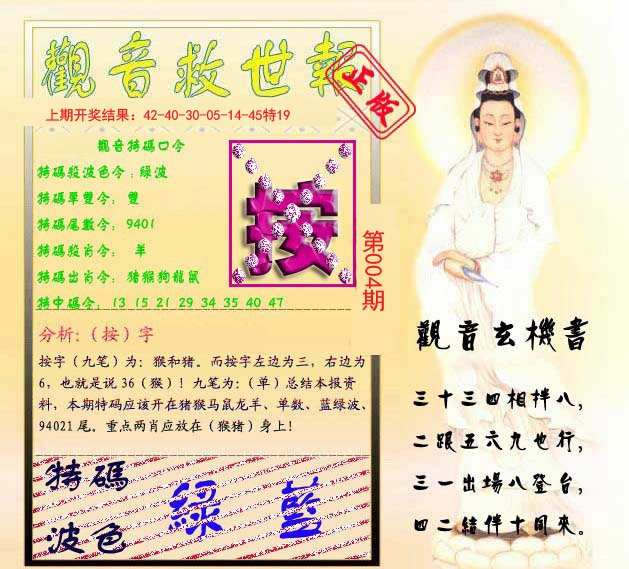 觀音救世報
正版
上期开奖结果：42-40-30-05-14-45特19
觀音特碼口令
特碼殺波色令：綠波
特碼單雙令： 雙
特碼尾數令： 9401
特碼殺肖令： 羊
特碼出肖令： 猪猴狗龍鼠
特中碼令： 13 15 21 29 34 35 40 47
按
第004期
分析：（按）字
按字（九笔）为：猴和猪。而按字左边为三，右边为
6，也就是说 36（猴）！九笔为：（单）总结本报资
料，本期特码应该开在猪猴马鼠龙羊、单数、蓝绿波、
94021 尾。重点两肖应放在（猴猪）身上！
特碼
波色
綠 藍
觀音玄機書
三十三四相拌八，
二跟五六九也行，
三一出場八登台，
四二結伴十同來。